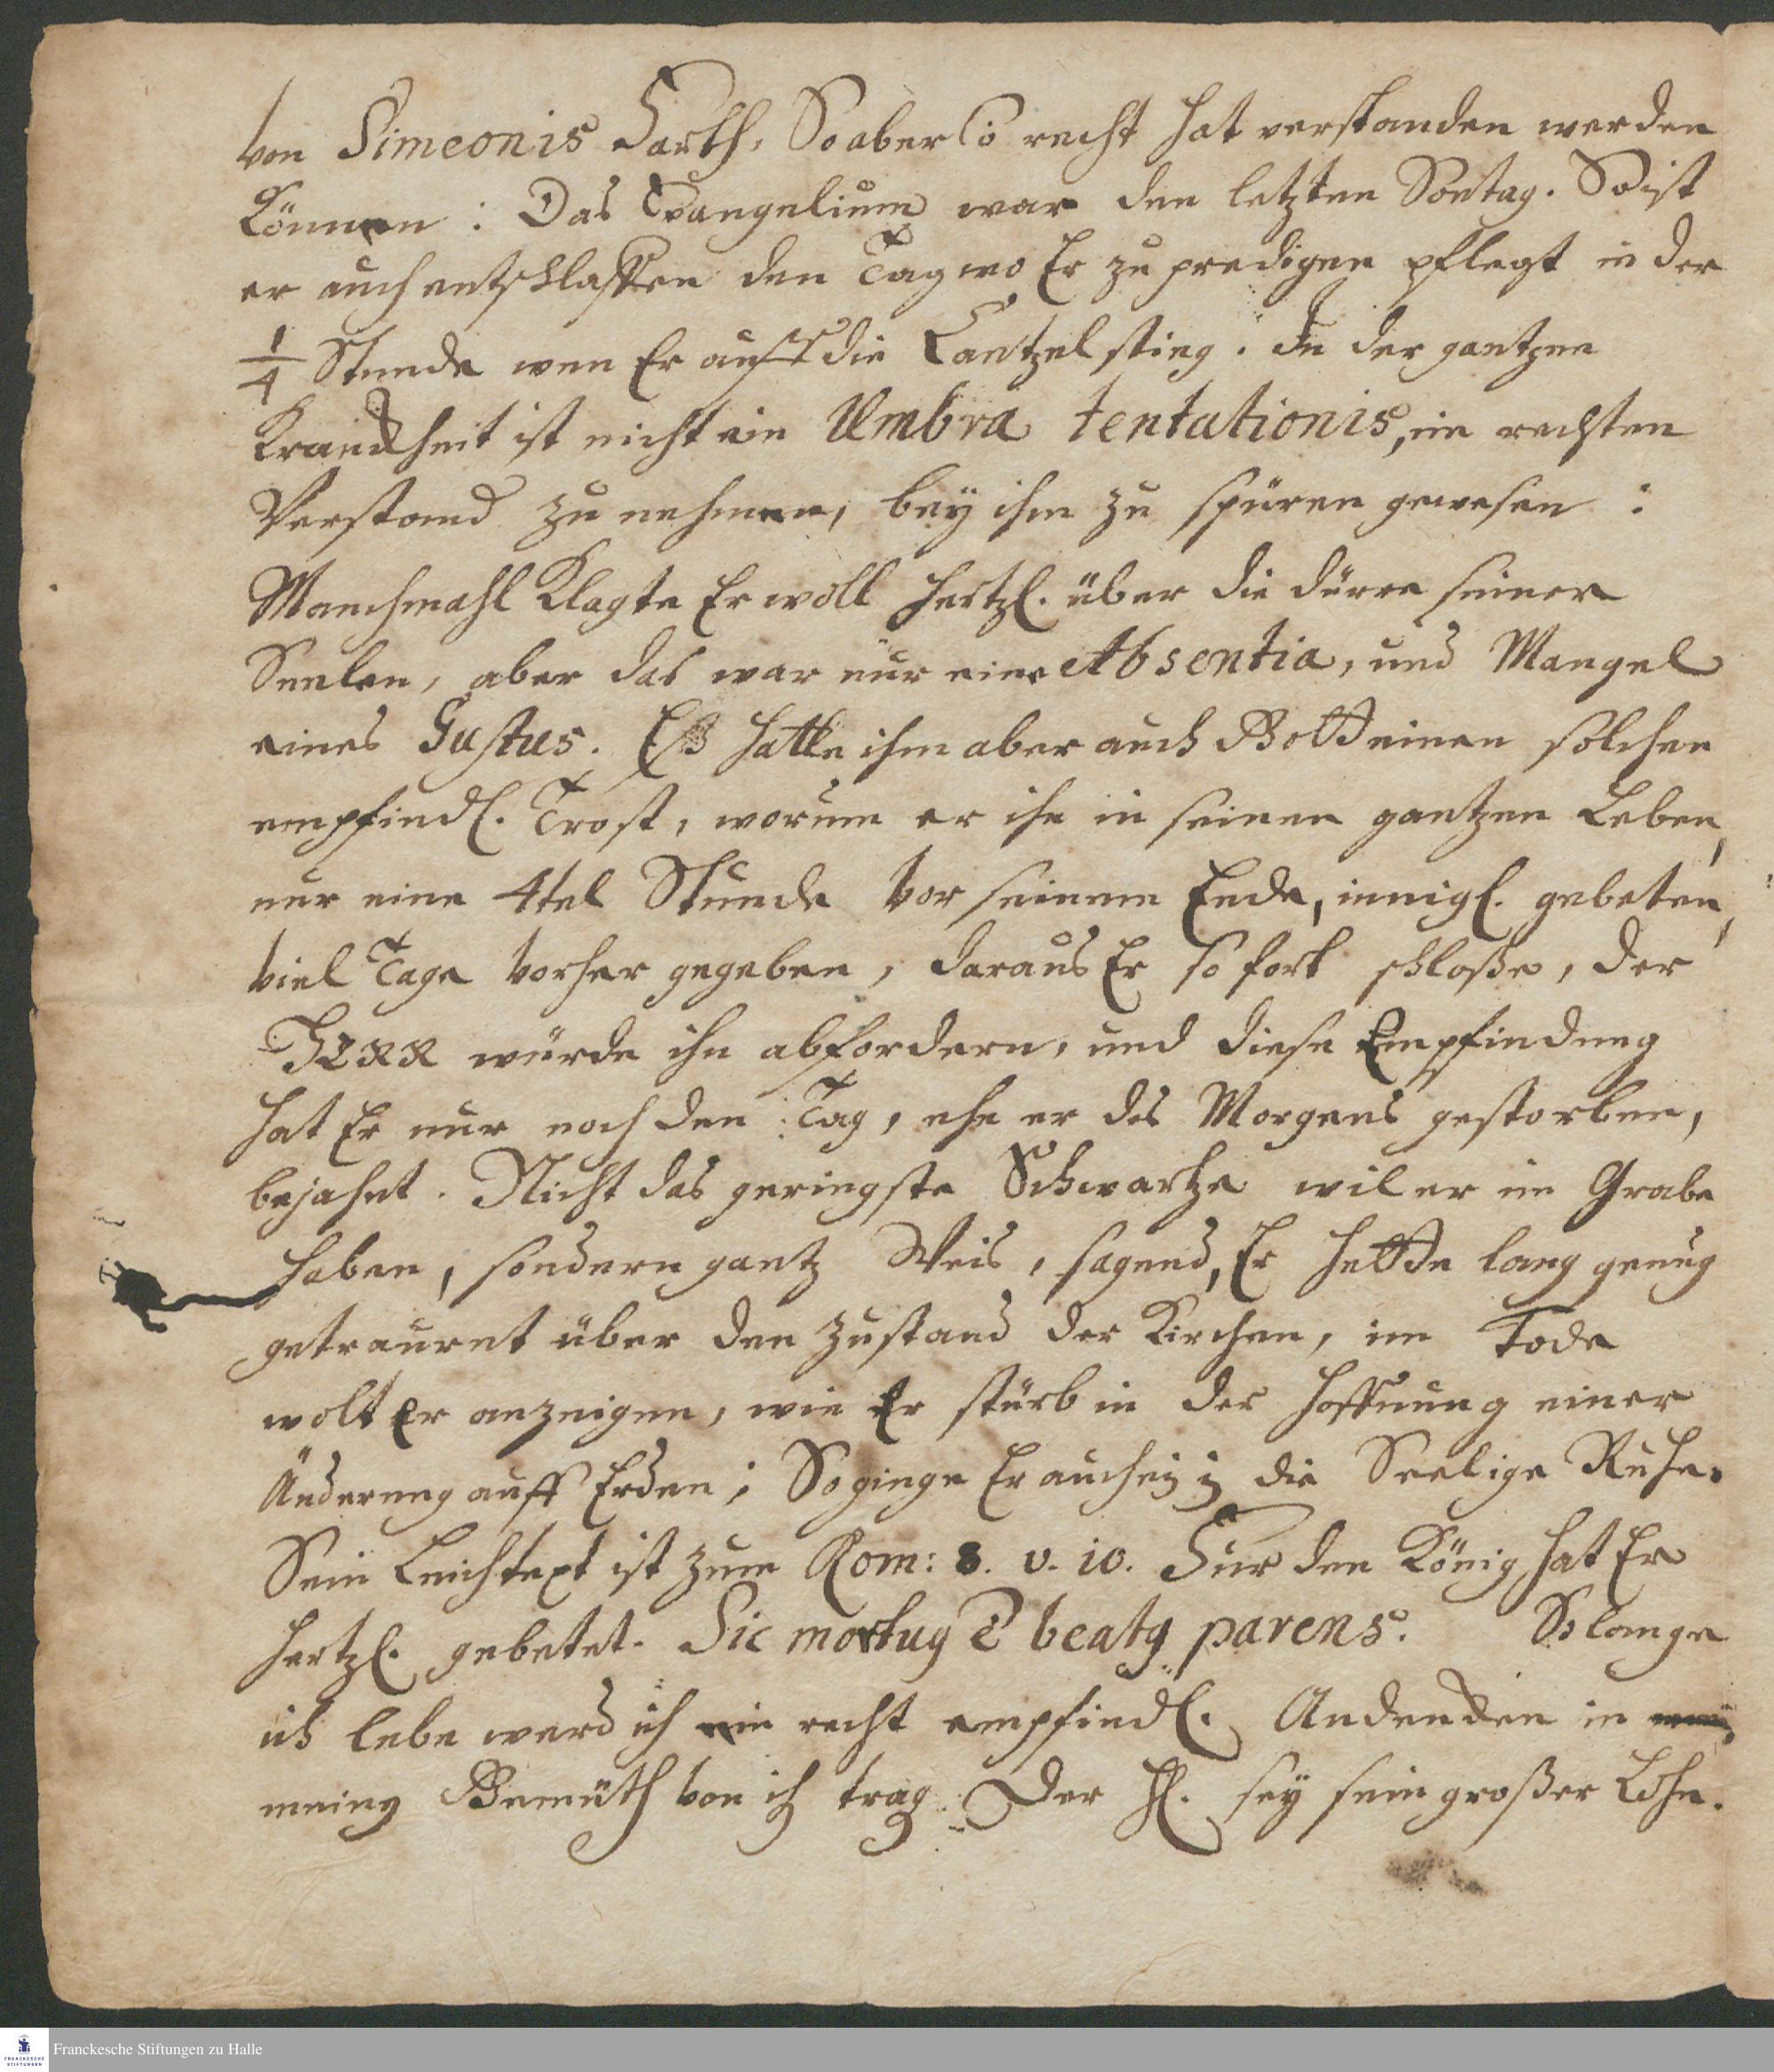 von Simeonis Farth, So aber so recht hat verstanden werden
können: Das Evangelium war den letzten Sontag. So ist
er auch entschlaffen den Tag wo Er zu predigen pflegt in der
1/4 Stunde wen Er auff die Cantzel stieg. In der gantzen
Kranckheit ist nicht ein Umbra tentationis, im rechten
Verstand zu nehmen, bey ihm zu spüren gewesen:
Manchmahl Klagte Er woll hertzl. über die dürre seiner
Seelen, aber das war nur eine Absentia, und Mangel
eines Gustus. Es hatte ihm aber auch Gott einen solchen
empfindl. Trost, worum er ihn in seinen gantzen Leben,
nur eine 4tel Stunde vor seinem Ende, innigl. gebeten,
viel Tage vorher gegeben, daraus Er so fort schloße, der
HERR würde ihn abfordern, und diese Empfindung
hat Er nur noch den Tag, ehe er des Morgens gestorben,
bejahet. Nicht das geringste Schwartze wil er im Grabe
haben, sondern gantz Weis, sagend, Er hette lang genug
getrauret über den zustand der Kirchen, im Tode
wolt Er anzeigen, wie Er stürb in der hoffnung einer
Änderung auff Erden; So ginge Er auch in die Seelige Ruhe.
Sein Leichtext ist zum Rom: 8. v. 10. Für den König hat Er
hertzl. gebetet. Sic mortuq ē beatq parens. So lange
ich lebe werd ich ein recht empfindl. Andencken in
meinen Gemüth von ihm trag. Der H. sey sein großer Lohn.
Franckesche Stiftungen zu Halle
FRANCKESCHE
STIFTUNGEN